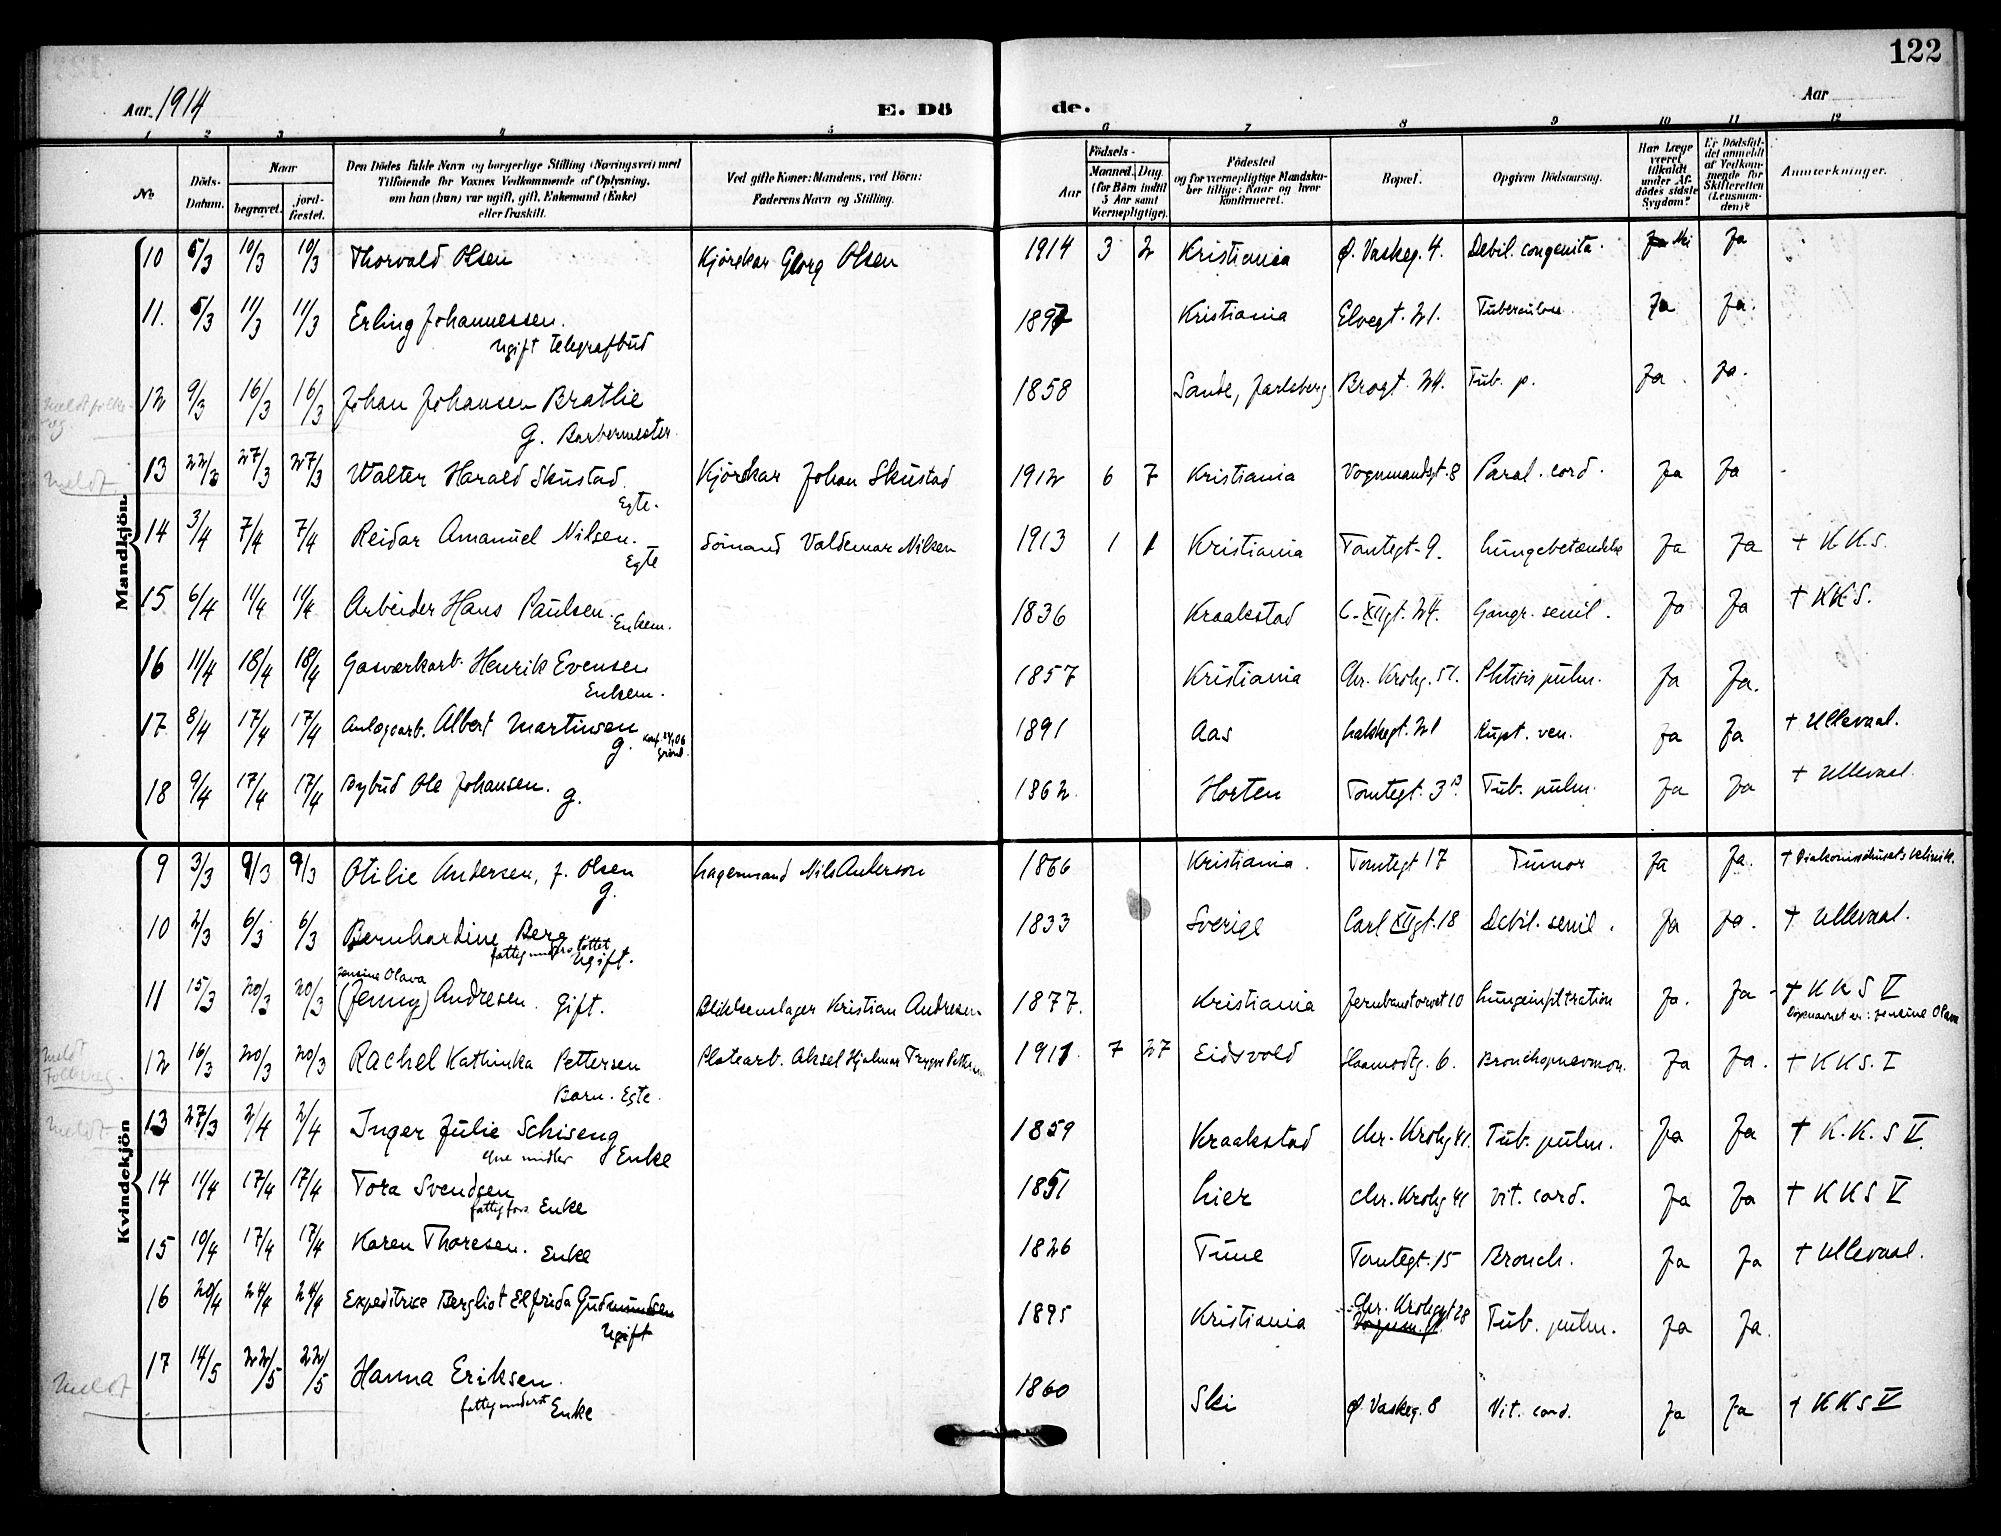 122
Aar 1914
E. Dö
de.
Aar
1 2 3 4 5 6 7 8 9 10 11 12
No.
Döds-Datum.
Naar
begravet.
jordfæstet.
Den Dödes fulde Navn og borgerlige Stilling (Næringsvei) med
Tilföiende for Voxnes Vedkommende af Oplysning,
om han (hun) var ugift, gift, Enkemand (Enke)
eller fraskilt.
Ved gifte Koner: Mandens, ved Börn:
Faderens Navn og Stilling.
Födsels-
Aar
Maaned. Dag.
(for Börn indtil
5 Aar samt
Værnepligtige).
Födested
og for værnepligtige Mandskaber tillige: Naar og hvor
Konfirmeret.
Bopæl.
Opgiven Dödsaarsag.
Har Læge været tilkaldt under Afdödes sidste Sygdom?
Er Dödsfaldet anmeldt af Vedkommende for Skifteretten (Lensmanden)?
Anmerkninger.
Mandkjön.
10 5/3 10/3 10/3 Thorvald Olsen Kjörekar Georg Olsen 1914 3 2 Kristiania Ø. Vaskeg. 4. Debil. congenita. Ja Ja
11. 5/3 11/3 11/3 Erling Johannessen. 1897 Kristiania Elvegt. 21. Tuberculose Ja Ja.
Ugift telegrafbud
12 9/3 16/3 16/3 Johan Johansen Brathie 1858 Sande, Jarlsberg Brogt. 24. Tub. p. Ja. Ja.
G. Barbermester.
meldt
13 22/3 27/3 27/3 Walter Harald Skustad. Kjörekar Johan Skustad 1912 6 7 Kristiania Vognmandsgt. 8 Paral. cord. Ja Ja
Egte.
14 3/4 7/4 7/4 Reidar Amanuel Nilsen. Sömand Valdemar Nilsen 1913 1 1 Kristiania Tomtegt. 9. Lungebetændelse Ja Ja + K.K.S.
Egte
15 6/4 11/4 11/4 Arbeider Hans Paulsen. 1836 Kraakstad C. XII gt. 24. Gangr. senil. Ja Ja + KKS.
Enkem.
16 11/4 18/4 18/4 Gasverkarb. Henrik Evensen 1857 Kristiania Chr. Krohg. 51. Phtisis pulm. Ja Ja.
Enkem.
17 8/4 17/4 17/4 Anlægsarb. Albert Martinsen 1891 Aas Lakkegt. 21 Rupt. ven. Ja Ja + Ullevaal.
g.
18 9/4 17/4 17/4 Bybud Ole Johansen. g. 1862. Horten Tomtegt. 3 Tub. pulm. Ja Ja + Ullevaal.
Kvindekjön
9 3/3 9/3 9/3 Otilie Andersen, f. Olsen Lagermand Nils Anderson 1866 Kristiania. Tomtegt 17 Tumor Ja Ja. + Diakonissehusets klinik.
g.
10 2/3 6/3 6/3 Bernhardine Berg 1833 Sverige Carl XII gt. 18 Debil. senil. Ja Ja. + Ullevaal.
fattigunderstöttet Ugift.
Jensine Olava
11 15/3 20/3 20/3 (Jenny) Andresen. Gift. Blikkenslager Kristian Andresen 1877. Kristiania Jernbanetorvet 10 Lungeinfiltration Ja. Ja + K K S V
Döpenavnet er: Jensine Olava
meldt
12 16/3 20/3 20/3 Rachel Kathinka Pettersen Platearb. Aksel Hjalmar Trygve Pettersen 1911. 7 27 Eidsvold Haarmodtg. 6. Bronchopnevmon. Ja Ja. + KKS. I
Barn. Egte.
meldt
13 27/3 2/4 2/4 Inger Julie Schiseng 1859 Kraakstad Chr. Krohg 41. Tub. pulm. Ja Ja + K. K. S V.
egne midler Enke
14 11/4 17/4 17/4 Tora Svendsen 1851 Lier Chr. Krohg 41 Vit. cord. Ja Ja + K K S V
fattigfors Enke
15 10/4 17/4 17/4 Karen Thoresen. Enke 1826 Tune Tomtegt. 15 Bronch. Ja Ja + Ullevaal.
16 20/4 24/4 24/4 Expeditrice Bergliot Elfrida Gudmundsen 1895 Kristiania Chr. Krohgsgt 28 Tub. pulm. Ja Ja.
Ugift
meldt
17 14/5 22/5 22/5 Hanna Eriksen. 1860 Ski Ø. Vaskeg. 8 Vit. cord. Ja Ja + K K S V
fattigunderst Enke